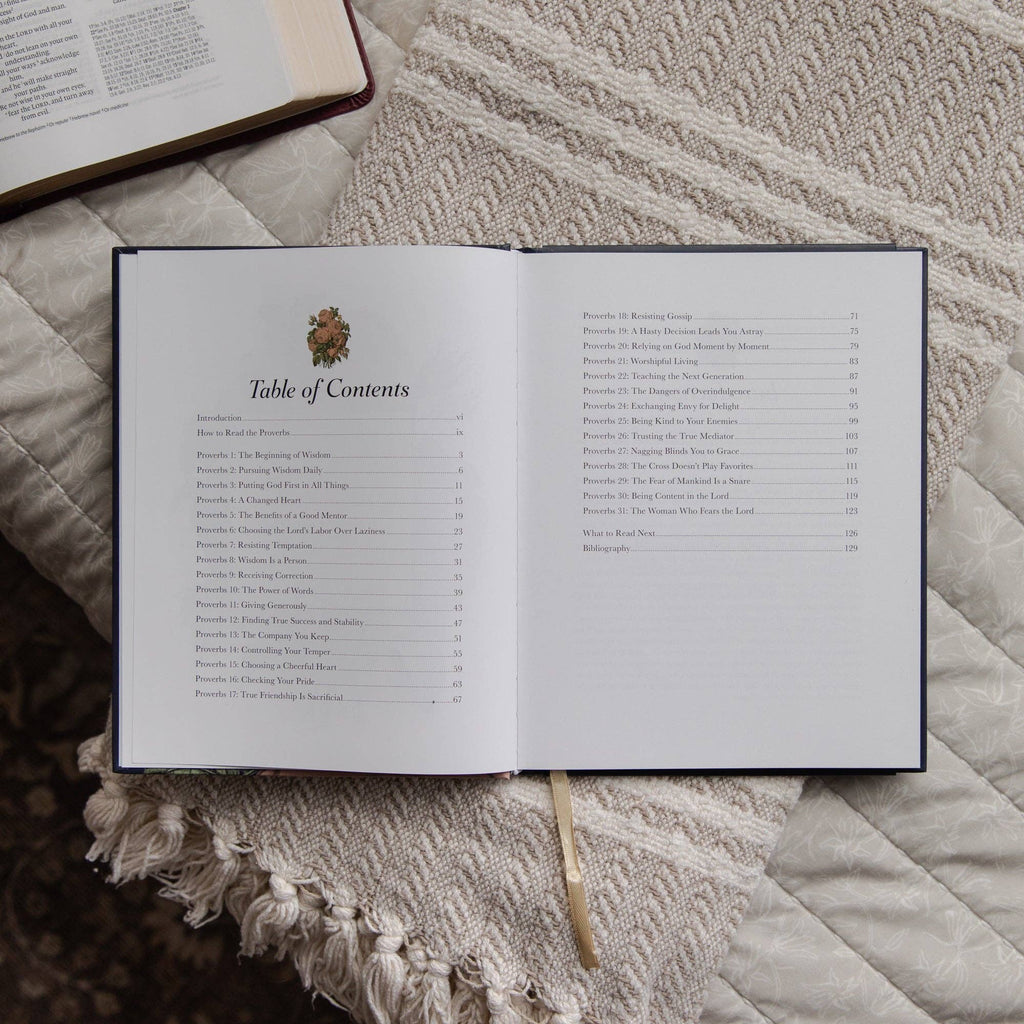 cess
sight of God and man.
in the LORD with all your
heart,
do not lean on your own
understanding.
all your ways acknowledge
him,
and he will make straight
your paths.
Be not wise in your own eyes;
fear the LORD, and turn away
from evil.
Table of Contents
Introduction vi
How to Read the Proverbs ix
Proverbs 1: The Beginning of Wisdom 3
Proverbs 2: Pursuing Wisdom Daily 6
Proverbs 3: Putting God First in All Things 11
Proverbs 4: A Changed Heart 15
Proverbs 5: The Benefits of a Good Mentor 19
Proverbs 6: Choosing the Lord's Labor Over Laziness 23
Proverbs 7: Resisting Temptation 27
Proverbs 8: Wisdom Is a Person 31
Proverbs 9: Receiving Correction 35
Proverbs 10: The Power of Words 39
Proverbs 11: Giving Generously 43
Proverbs 12: Finding True Success and Stability 47
Proverbs 13: The Company You Keep 51
Proverbs 14: Controlling Your Temper 55
Proverbs 15: Choosing a Cheerful Heart 59
Proverbs 16: Checking Your Pride 63
Proverbs 17: True Friendship Is Sacrificial 67
Proverbs 18: Resisting Gossip 71
Proverbs 19: A Hasty Decision Leads You Astray 75
Proverbs 20: Relying on God Moment by Moment 79
Proverbs 21: Worshipful Living 83
Proverbs 22: Teaching the Next Generation 87
Proverbs 23: The Dangers of Overindulgence 91
Proverbs 24: Exchanging Envy for Delight 95
Proverbs 25: Being Kind to Your Enemies 99
Proverbs 26: Trusting the True Mediator 103
Proverbs 27: Nagging Blinds You to Grace 107
Proverbs 28: The Cross Doesn't Play Favorites 111
Proverbs 29: The Fear of Mankind Is a Snare 115
Proverbs 30: Being Content in the Lord 119
Proverbs 31: The Woman Who Fears the Lord 123
What to Read Next 126
Bibliography 129